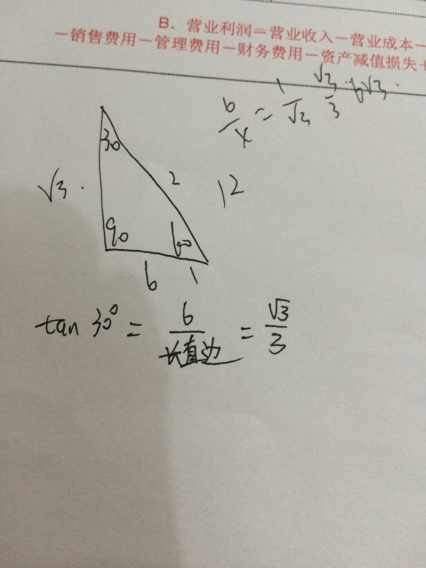 B. 营业利润=营业收入-营业成本-
-销售费用-管理费用-财务费用-资产减值损失+
6/x = 1/√3 √3/3 · 6√3.
30
√3.
2
12
90
60
6
1
tan 30° = 6/长直边 = √3/3